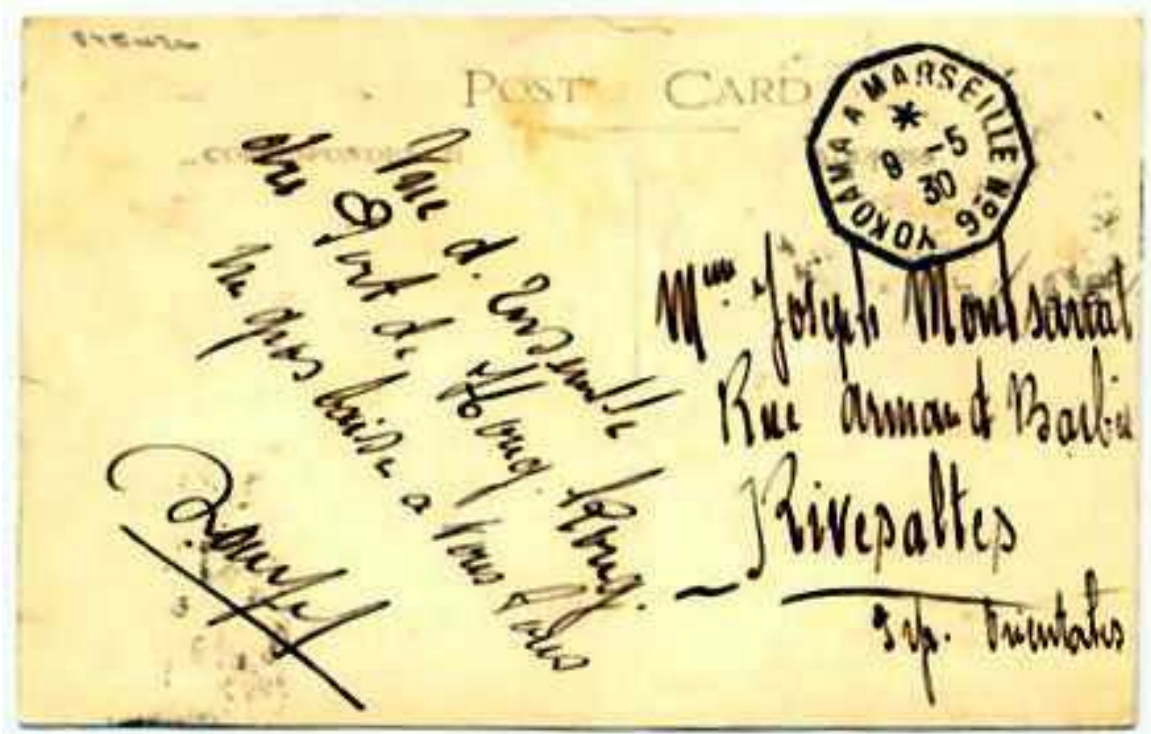 POST CARD
CORRESPONDENCE
YOKOAMA A MARSEILLE Nº6
* -5
9 30
Vue d'ensemble
du Port de Hong. Kong.
un gros baiser a vous tous
Mme Joseph Montsarrat
Rue Armand Barbès
Rivesaltes
Pyr. Orientales